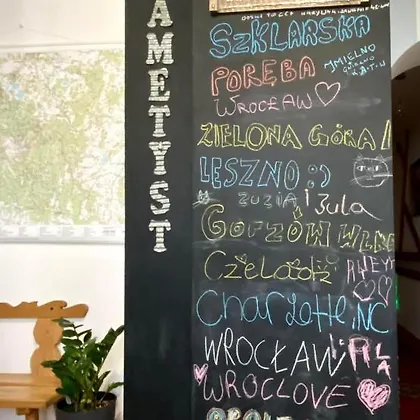 AMETYST
SZKLARSKA
PORĘBA
JMIELNO
WROCŁAW
ZIELONA GÓRA!
LESZNO :)
ZUZIA i Zula
GORZÓW WLKP
CZELADŹ
Charlotte, NC
WROCŁAW
WROCLOVE
OPOLE